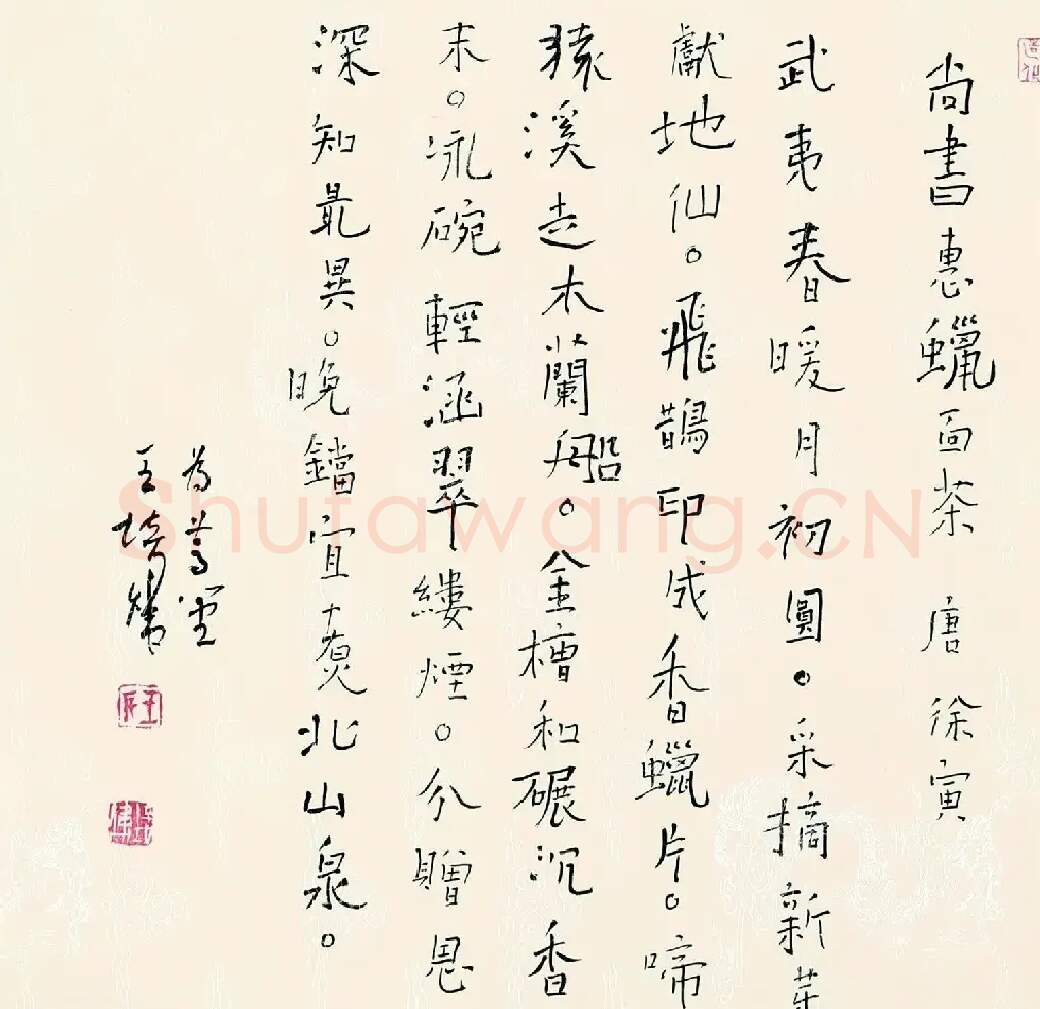 尚書惠蠟面茶 唐 徐寅
武夷春暖月初圓。采摘新芽
獻地仙。飛鵲印成香蠟片。啼
猿溪走木蘭船。金槽和碾沉香
末。冰碗輕涵翠縷煙。分贈恩
深知最異。晚鐺宜煮北山泉。
為
王
Shufawang.CN